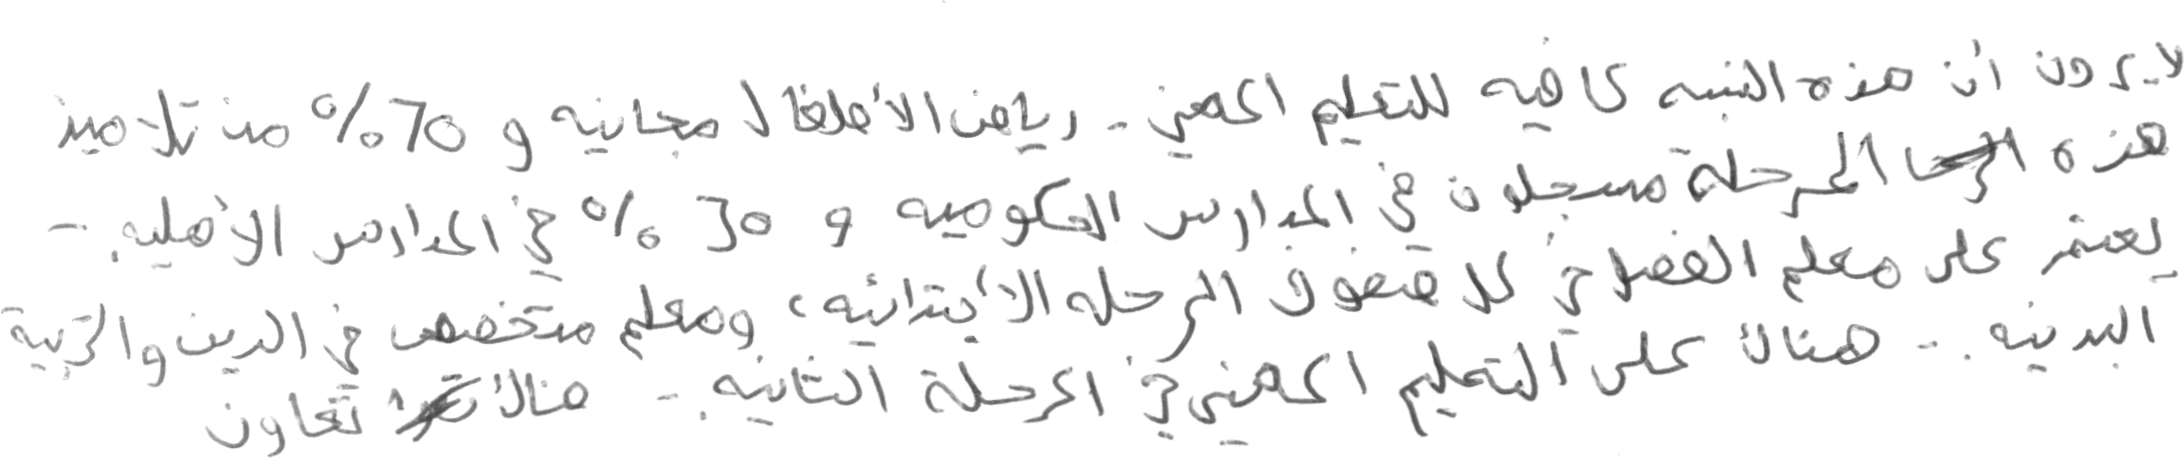 لا يرون أن هذه النسبه كافيه للتعليم المهني - رياض الأطفال مجانيه و 70% من تلاميذ
هذه المرحلة مسجلون في المدارس الحكوميه و 30% في المدارس الأهليه. -
يعتمد على معلم الفصل في كل صفوف المرحله الابتدائيه، ومعلم متخصص في الدين والتربية
البدنيه. - هناك على التعليم المهني في المرحلة الثانيه. - هناك تعاون